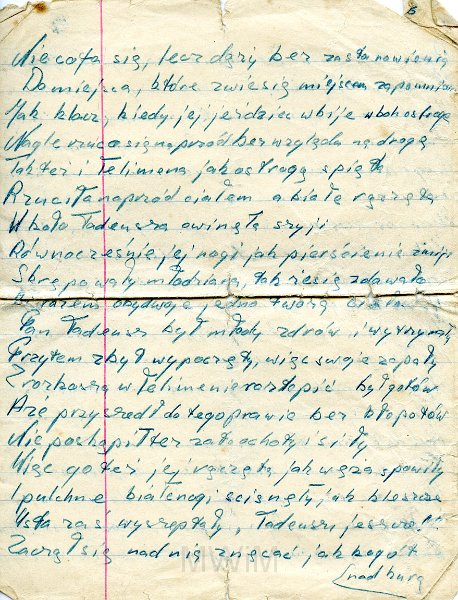 8
Nie cofa się, lecz dąży bez zastanowienia
Do miejsca, które zwie się miejscem zapomnienia
Jak klacz, kiedy jej jeździec wbije w bok ostrogę
Nagle rzuca się naprzód bez względu na drogę
Tak też i Telimena jak ostrogą spięta
Rzuciła naprzód ciałem a białe rączęta
Wkoło Tadeusza owinęła szyji
Równocześnie jej nogi jak pierścienie żmiji
Skrępowały młodziana, tak że się zdawało
że razem obydwoje jedno tworzą ciało
Pan Tadeusz był młody zdrów i wytrzymały
Przytem zbyt wypoczęty, więc swoje zapały
Z rozkoszą w Telimenie roztopić był gotów
Aże przyszedł do tego prawie bez kłopotów
Nie poskąpił też zato ochoty i siły
Więc go też jej rączęta jak węża spowiły
I pulchne białe nogi ścisnęły jak kleszcze
Usta zaś wyszeptały, Tadeuszu jeszcze!!
Zaczął się nad nią znęcać jak